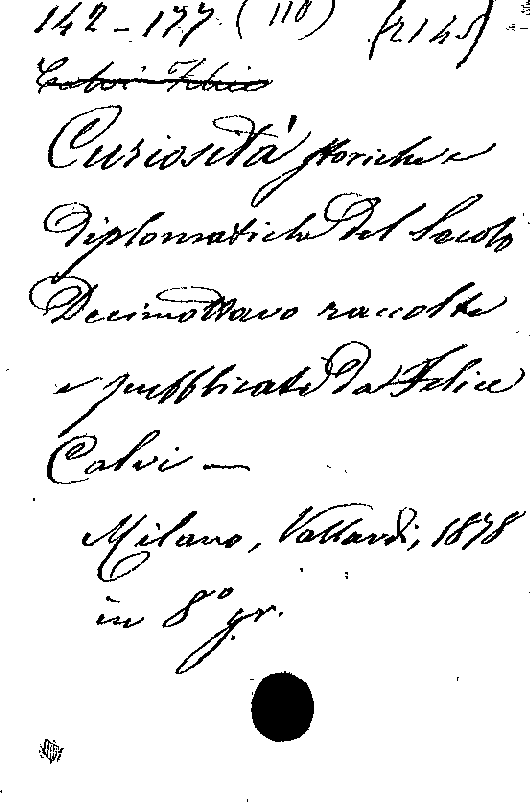 142-177 (110) (2145)
Calvi Felice
Curiosità storiche e
diplomatiche del Secolo
Decimottavo raccolte
e pubblicate da Felice
Calvi —
Milano, Vallardi, 1878
in 8° gr.